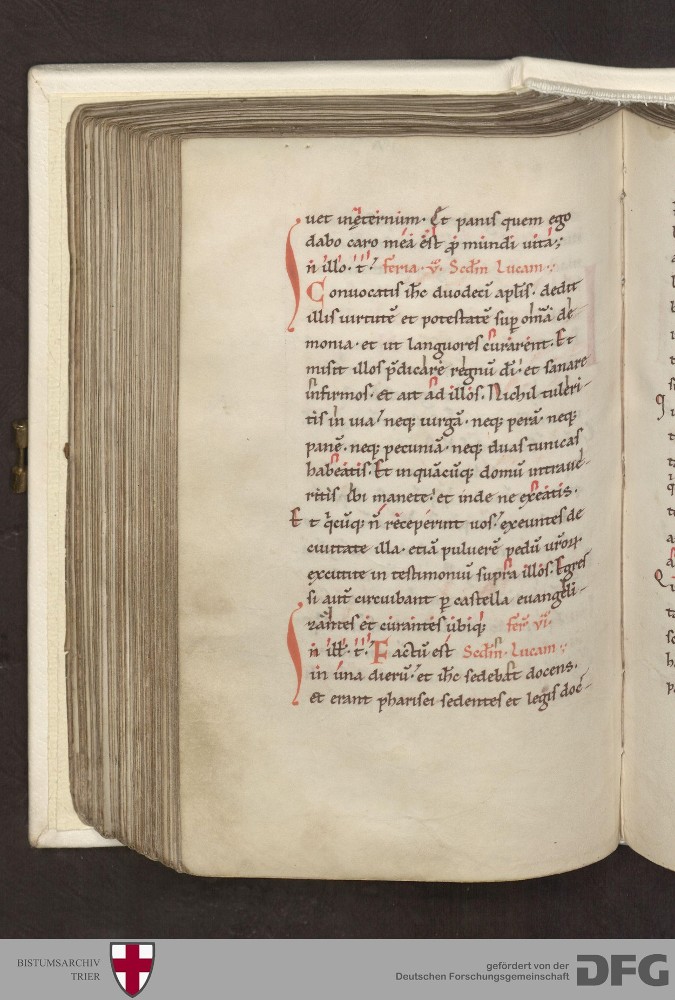 uet in ęternum. Et panis quem ego
dabo caro mea est p̄ mundi uita;
In illo. t. feria. v. Scdm̄ Lucam.
Conuocatis ih̄c duodeci apl̄is. dedit
illis uirtutē et potestatē sup om̄a de-
monia. et ut languores curarent. Et
misit illos p̄dicare regnū dī. et sanare
infirmos. et ait ad illos. Nichil tuleri-
tis in uia. neq; uirgā. neq; perā. neq;
panē. neq; pecuniā. neq; duas tunicas
habeatis. Et in quācūq; domū intraue-
ritis ibi manete. et inde ne exeatis.
Et q̄cūq; n̄ receperint uos. exeuntes de
ciuitate illa. etiā puluerē pedū uroꝝ
excutite in testimoniū supra illos. Egres
si aut̄ circuibant p castella euangeli-
zantes et curantes ubiq; fer̄. vi.
In ill̄. t. Factū est Scdm̄. Lucam.
in una dierū. et ih̄c sedebat docens.
et erant pharisei sedentes et legis doc-
BISTUMSARCHIV
TRIER
gefördert von der
Deutschen Forschungsgemeinschaft
DFG